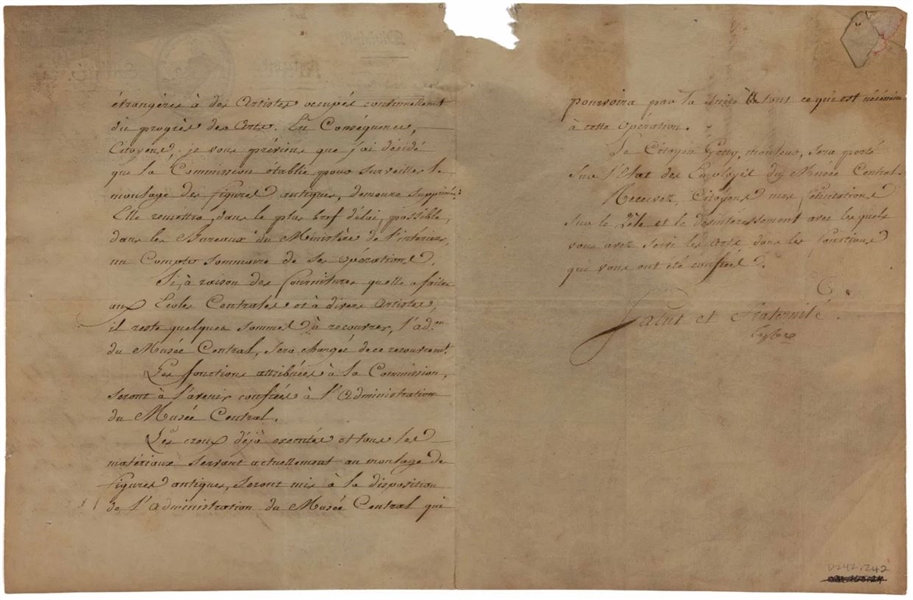 étrangères à des Artistes occupés continuellement
du progrès des Arts. En Conséquence,
Citoyens, je vous préviens que j'ai décidé
que la Commission établie pour surveiller le
moulage des figures antiques, demeure Supprimée.
Elle remettra, dans le plus bref délai possible,
dans les Bureaux du Ministère de l'intérieur,
un Compte sommaire de ses opérations.
Si, à raison des fournitures qu'elle a faites
aux Ecoles Centrales et à divers Artistes,
il reste quelques sommes à recouvrer, l'ad.on
du Musée Central, sera chargée de ce recouvrement.
Les fonctions attribuées à la Commission,
seront à l'avenir confiées à l'Administration
du Musée Central.
Les creux déjà exécutés et tous les
matériaux servant actuellement au moulage de
figures antiques, seront mis à la disposition
de l'Administration du Musée Central qui
pourvoira par la suite à tout ce qui est nécessaire
à cette Opération.
Le Citoyen Getty, mouleur, sera porté
Sur l'Etat des Employés du Musée Central.
Recevez, Citoyens mes
Sur le Zèle et le désintéressement avec lesquels
vous avez servi les Arts dans les fonctions
qui vous ont été confiées.
Salut et Fraternité.